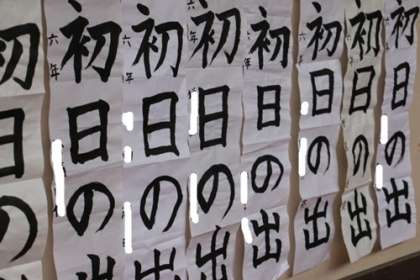 初日の出
初日の出
初日の出
六年
初日の出
六年
初日の出
六年
初日の出
六年
初日の出
六年
初日の